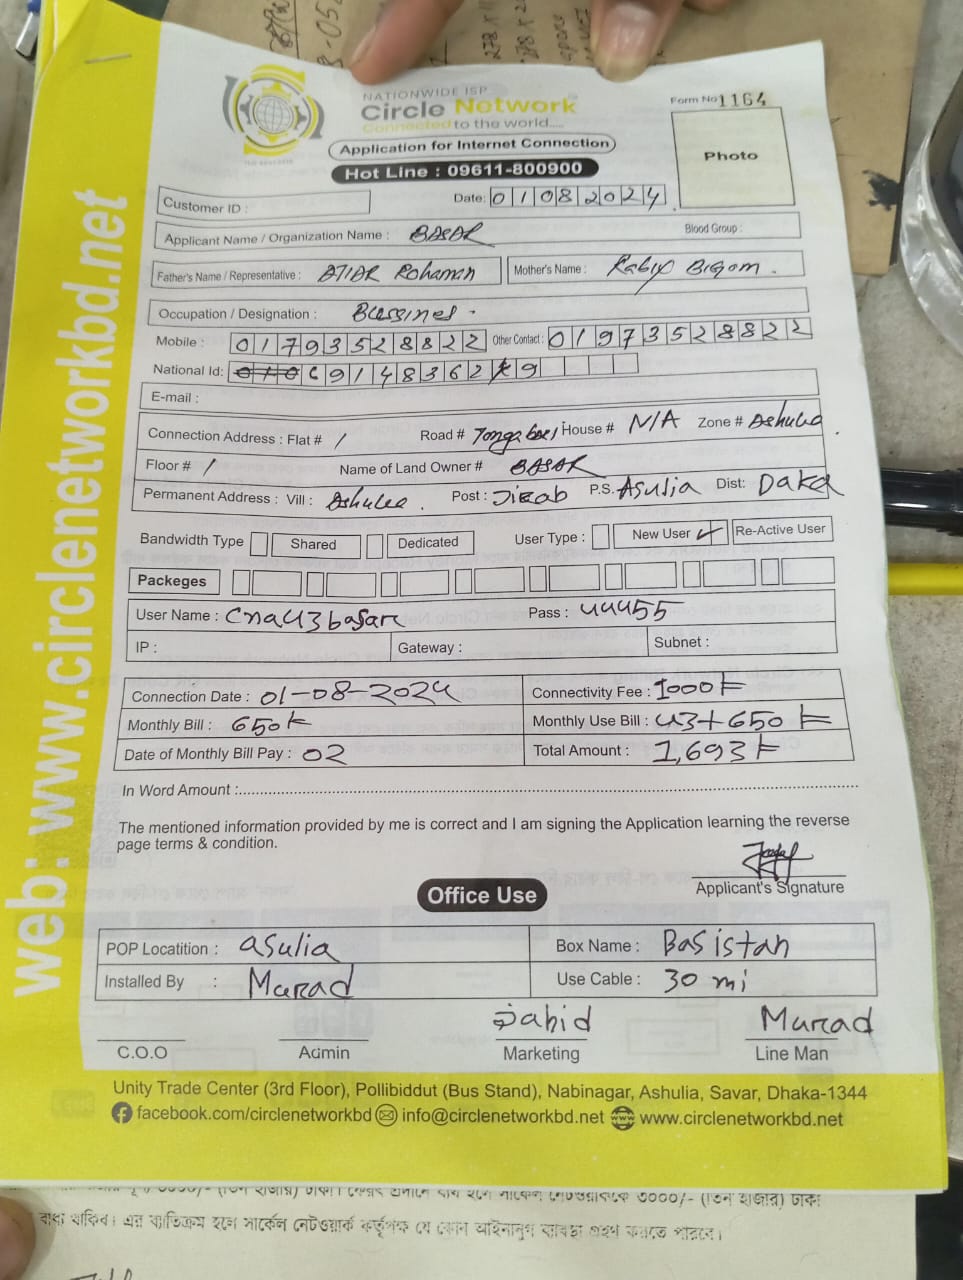 NATIONWIDE ISP
Circle Network
Connected to the world....
Form No 1164
Application for Internet Connection
Hot Line : 09611-800900
Photo
Customer ID :
Date: 01082024
Applicant Name / Organization Name : BASAR Blood Group :
Father's Name / Representative : ATIAR Rohaman Mother's Name : Rabiya Bigom .
Occupation / Designation : Bussines .
Mobile : 01793528822 Other Contact : 01973528822
National Id: 69148362 9
E-mail :
Connection Address : Flat # / Road # Tongabari House # N/A Zone # Ashulia
Floor # / Name of Land Owner # BASAR
Permanent Address : Vill : Ashulia . Post : Jirab P.S. Asulia Dist: Daka
Bandwidth Type Shared Dedicated User Type : New User ✓ Re-Active User
Packeges
User Name : cn443basar Pass : 44455
IP : Gateway : Subnet :
Connection Date : 01-08-2024 Connectivity Fee : 1000
Monthly Bill : 650 Monthly Use Bill : 43+650
Date of Monthly Bill Pay : 02 Total Amount : 1,693
In Word Amount :
The mentioned information provided by me is correct and I am signing the Application learning the reverse
page terms & condition.
Applicant's Signature
Office Use
POP Locatition : asulia Box Name : Basistan
Installed By : Murad Use Cable : 30 mi
Jahid Murad
C.O.O Admin Marketing Line Man
Unity Trade Center (3rd Floor), Pollibiddut (Bus Stand), Nabinagar, Ashulia, Savar, Dhaka-1344
facebook.com/circlenetworkbd info@circlenetworkbd.net www.circlenetworkbd.net
web: www.circlenetworkbd.net
৩০০০/- (তিন হাজার) টাকা
বাধ্য থাকিব। এর ব্যতিক্রম হলে সার্কেল নেটওয়ার্ক কর্তৃপক্ষ যে কোন আইনানুগ ব্যবস্থা গ্রহণ করতে পারবে।